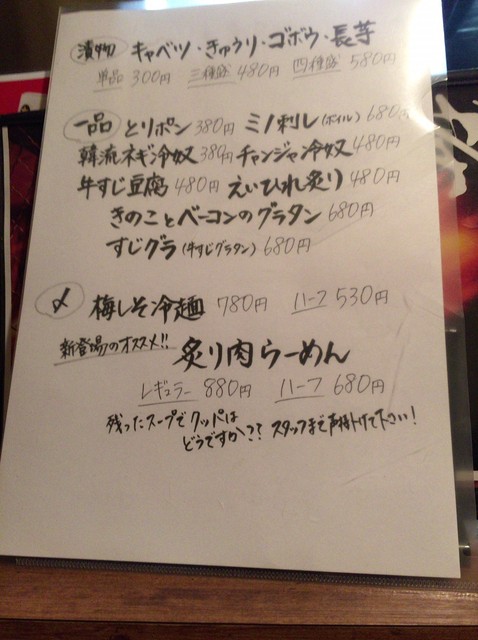 漬物 キャベツ・きゅうり・ゴボウ・長芋
単品 300円 三種盛 480円 四種盛 580円
一品 とりポン 380円 ミノ刺し(ボイル) 680円
韓流ネギ冷奴 380円 チャンジャ冷奴 480円
牛すじ豆腐 480円 えいひれ炙り 480円
きのことベーコンのグラタン 680円
すじグラ(牛すじグラタン) 680円
〆 梅しそ冷麺 780円 ハーフ 530円
新登場のオススメ!! 炙り肉らーめん
レギュラー 880円 ハーフ 680円
残ったスープでクッパは
どうですか?? スタッフまで声掛けて下さい!